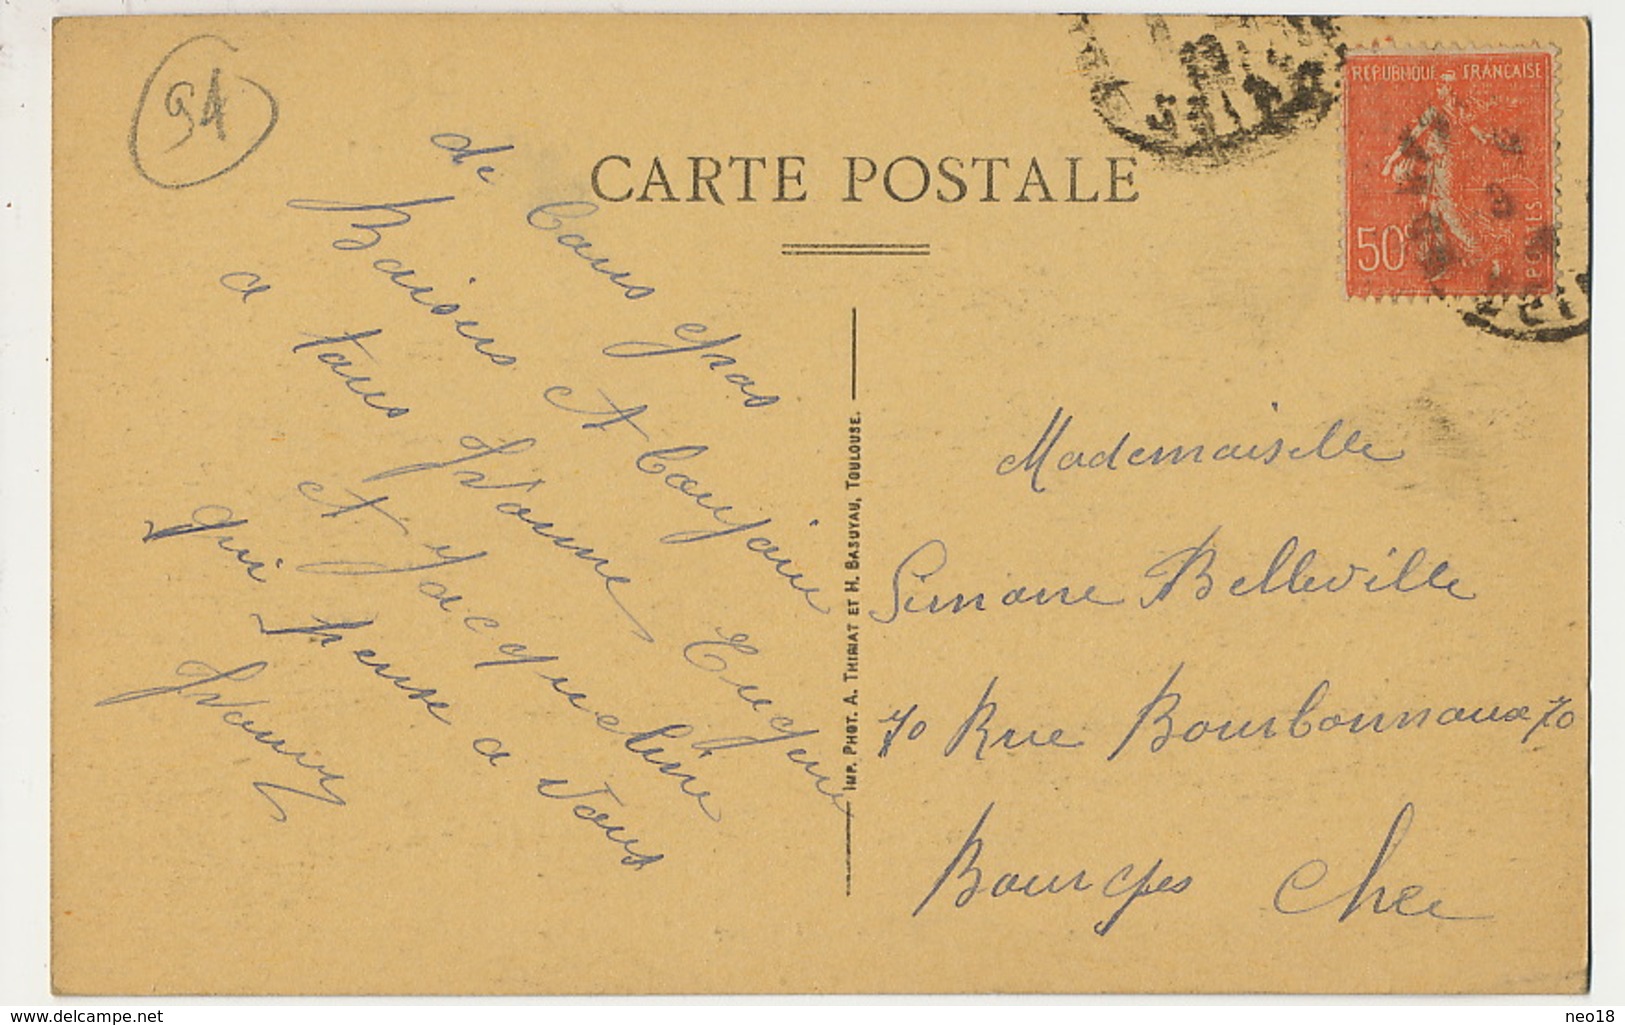 94
CARTE POSTALE
REPUBLIQUE FRANCAISE
50
POSTES
de bons gros
Baisers et
a tous
et Jacqueline
qui pense a vous
IMP. PHOT. A. THIRIAT ET H. BASUYAU, TOULOUSE.
Mademoiselle
Simone Belleville
70 Rue Bourbonnoux 70
Bourges Cher
www.delcampe.net
neo18